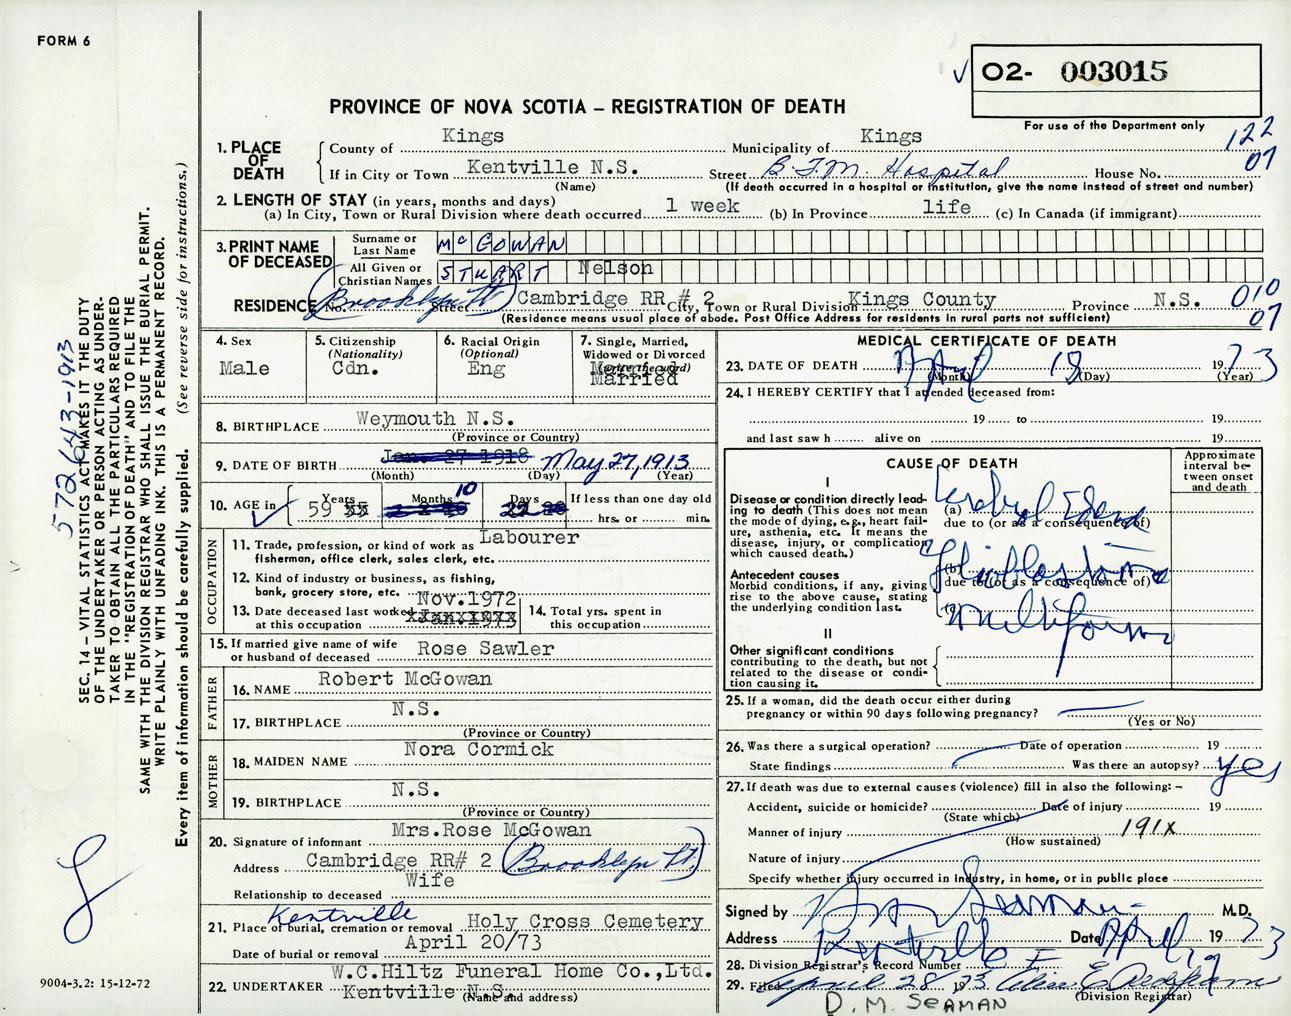 FORM 6
O2- 003015
For use of the Department only
PROVINCE OF NOVA SCOTIA – REGISTRATION OF DEATH
122
07
1. PLACE OF DEATH
County of Kings Municipality of Kings
If in City or Town Kentville N.S. Street B.F.M. Hospital House No.
(Name) (If death occurred in a hospital or institution, give the name instead of street and number)
2. LENGTH OF STAY (in years, months and days)
(a) In City, Town or Rural Division where death occurred 1 week (b) In Province life (c) In Canada (if immigrant)
3. PRINT NAME OF DECEASED
Surname or Last Name McGOWAN
All Given or Christian Names STUART Nelson
RESIDENCE No. Brooklyn St Street Cambridge RR # 2 City, Town or Rural Division Kings County Province N.S.
(Residence means usual place of abode. Post Office Address for residents in rural parts not sufficient)
010
07
4. Sex
Male
5. Citizenship
(Nationality)
Cdn.
6. Racial Origin
(Optional)
Eng
7. Single, Married,
Widowed or Divorced
(write the word)
Married
8. BIRTHPLACE Weymouth N.S.
(Province or Country)
9. DATE OF BIRTH Jan. 27 1918 May 27, 1913
(Month) (Day) (Year)
10. AGE in 59 Years 10 Months 22 Days If less than one day old
hrs. or min.
OCCUPATION
11. Trade, profession, or kind of work as Labourer
fisherman, office clerk, sales clerk, etc.
12. Kind of industry or business, as fishing,
bank, grocery store, etc.
13. Date deceased last worked Nov.1972
at this occupation
14. Total yrs. spent in
this occupation
15. If married give name of wife
or husband of deceased Rose Sawler
FATHER
16. NAME Robert McGowan
17. BIRTHPLACE N.S.
(Province or Country)
MOTHER
18. MAIDEN NAME Nora Cormick
19. BIRTHPLACE N.S.
(Province or Country)
20. Signature of informant Mrs.Rose McGowan
Address Cambridge RR# 2 (Brooklyn St.)
Relationship to deceased Wife
21. Place of burial, cremation or removal Kentville Holy Cross Cemetery
Date of burial or removal April 20/73
22. UNDERTAKER W.C.Hiltz Funeral Home Co.,Ltd.
Kentville N.S.
(Name and address)
MEDICAL CERTIFICATE OF DEATH
23. DATE OF DEATH April 18 1973
(Month) (Day) (Year)
24. I HEREBY CERTIFY that I attended deceased from:
19 to 19
and last saw h alive on 19
CAUSE OF DEATH
Approximate interval between onset and death
I
Disease or condition directly leading to death (This does not mean the mode of dying, e.g., heart failure, asthenia, etc. It means the disease, injury, or complication which caused death.)
(a) Cerebral Edema
due to (or as a consequence of)
Antecedent causes
Morbid conditions, if any, giving rise to the above cause, stating the underlying condition last.
(b) Glioblastoma
due to (or as a consequence of)
(c) Multiforme
II
Other significant conditions
contributing to the death, but not related to the disease or condition causing it.
25. If a woman, did the death occur either during
pregnancy or within 90 days following pregnancy?
(Yes or No)
26. Was there a surgical operation? Date of operation 19
State findings Was there an autopsy? yes
27. If death was due to external causes (violence) fill in also the following: –
Accident, suicide or homicide? Date of injury 19
(State which)
Manner of injury 191X
(How sustained)
Nature of injury
Specify whether injury occurred in Industry, in home, or in public place
Signed by Seaman M.D.
Address Kentville Date April 1973
28. Division Registrar's Record Number
29. Filed April 28 1973
(Division Registrar)
D. M. SEAMAN
572643-1913
SEC. 14 – VITAL STATISTICS ACT MAKES IT THE DUTY
OF THE UNDERTAKER OR PERSON ACTING AS UNDER-
TAKER TO OBTAIN ALL THE PARTICULARS REQUIRED
IN THE "REGISTRATION OF DEATH" AND TO FILE THE
SAME WITH THE DIVISION REGISTRAR WHO SHALL ISSUE THE BURIAL PERMIT.
WRITE PLAINLY WITH UNFADING INK. THIS IS A PERMANENT RECORD.
Every item of information should be carefully supplied. (See reverse side for instructions.)
9004-3.2: 15-12-72